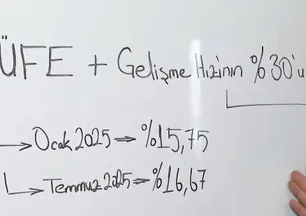 ÜFE + Gelişme Hızının %30'u
→ Ocak 2025 → %15,75
→ Temmuz 2025 → %16,67